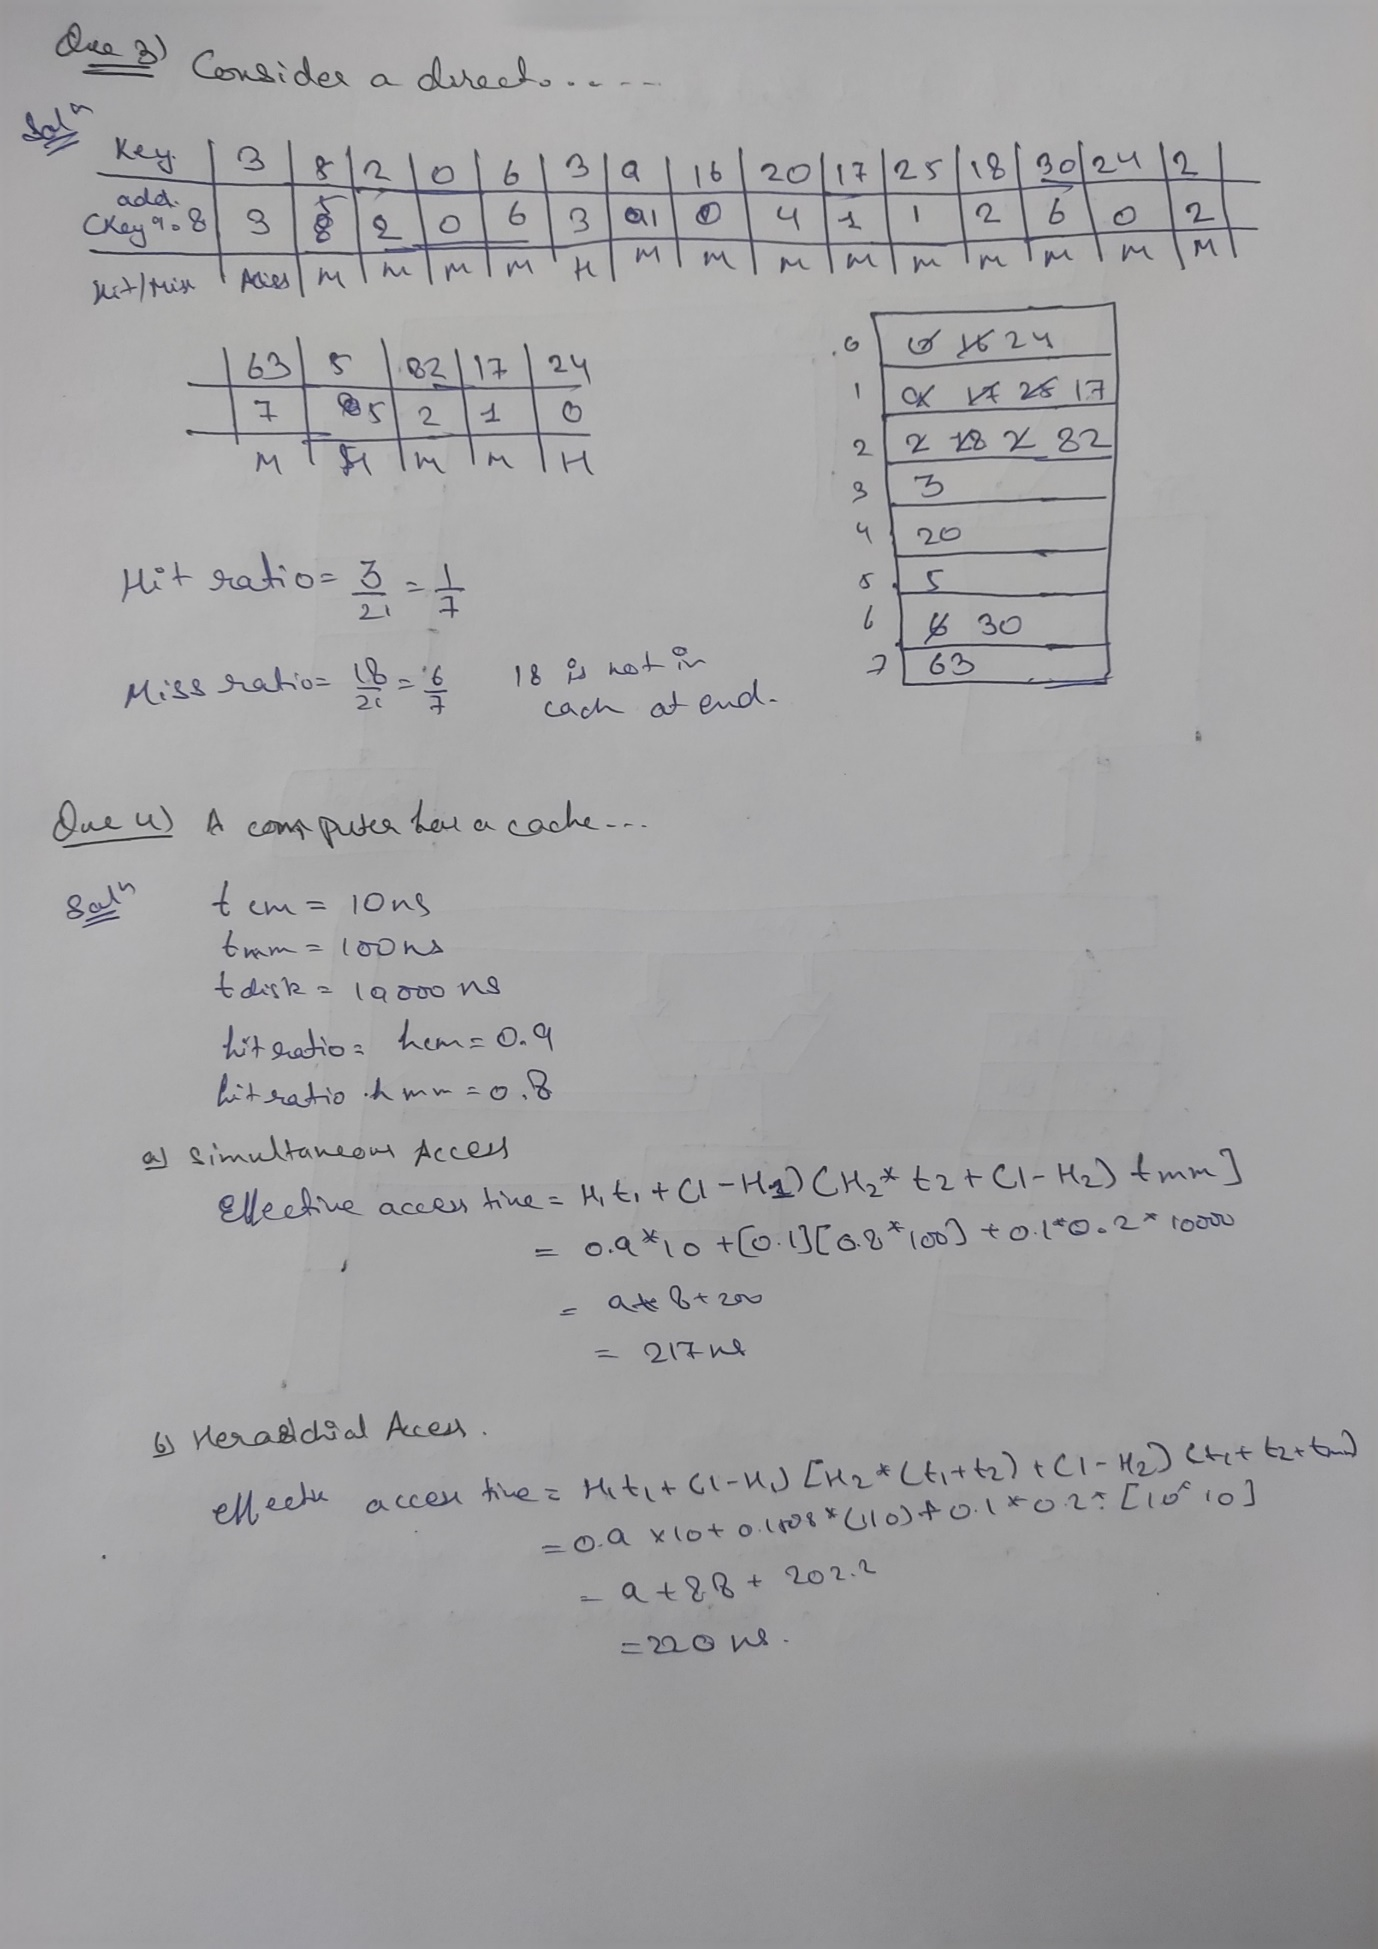 Que 3) Consider a direct.....
Soln
Key 3 8 2 0 6 3 9 16 20 17 25 18 30 24 2
add. (Key % 8 3 5 2 0 6 3 1 0 4 1 1 2 6 0 2
Hit/Miss Acces M M M M H M M M M M M M M M
63 5 82 17 24
7 5 2 1 0
M H M M H
0 0 16 24
1 9 17 25 17
2 2 18 2 82
3 3
4 20
5 5
6 6 30
7 63
Hit ratio = 3/21 = 1/7
Miss ratio = 18/21 = 6/7
18 is not in
cach at end.
Que 4) A computer has a cache...
Soln
tcm = 10ns
tmm = 100ns
tdisk = 10000 ns
hit ratio = hcm = 0.9
hit ratio hmm = 0.8
a) Simultaneous Access
Effective access time = H1t1 + (1-H1) (H2* t2 + (1-H2) tmm]
= 0.9*10 + [0.1][0.8*100] + 0.1*0.2*10000
= 9+ 8+200
= 217ns
b) Heraidchial Acess.
effectu access time = H1t1 + (1-H1) [H2*(t1+t2) + (1-H2) (t1+ t2+
= 0.9 x10+ 0.1 *(110)+ 0.1*0.2*
= 9 + 8.8 + 202.2
= 220 ns.